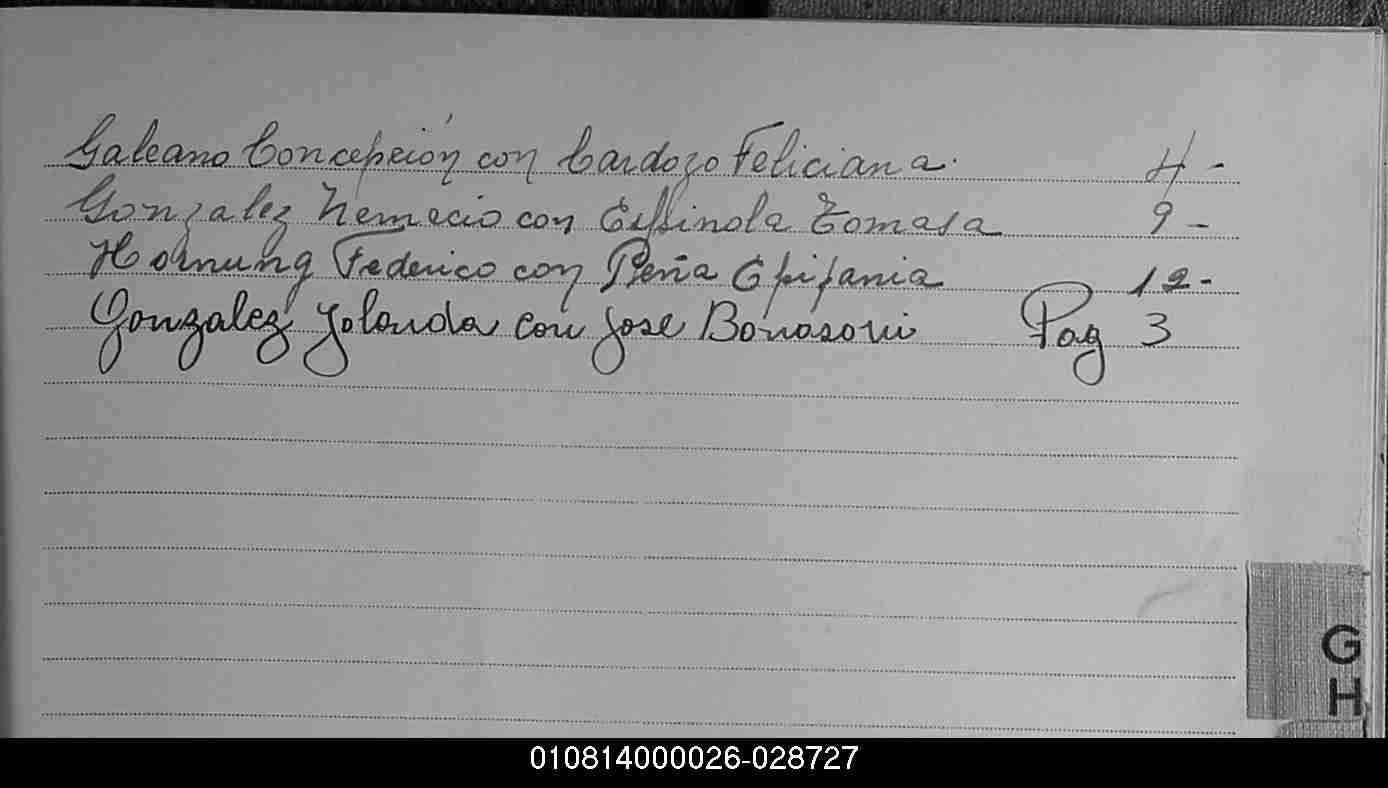 Galeano Concepción con Cardozo Feliciana. 4 -
Gonzalez Nemecio con Espinola Tomasa 9 -
Hornung Federico con Peña Epifania 12 -
Gonzalez Yolanda con Jose Bonasoni Pag 3
G
H
010814000026-028727